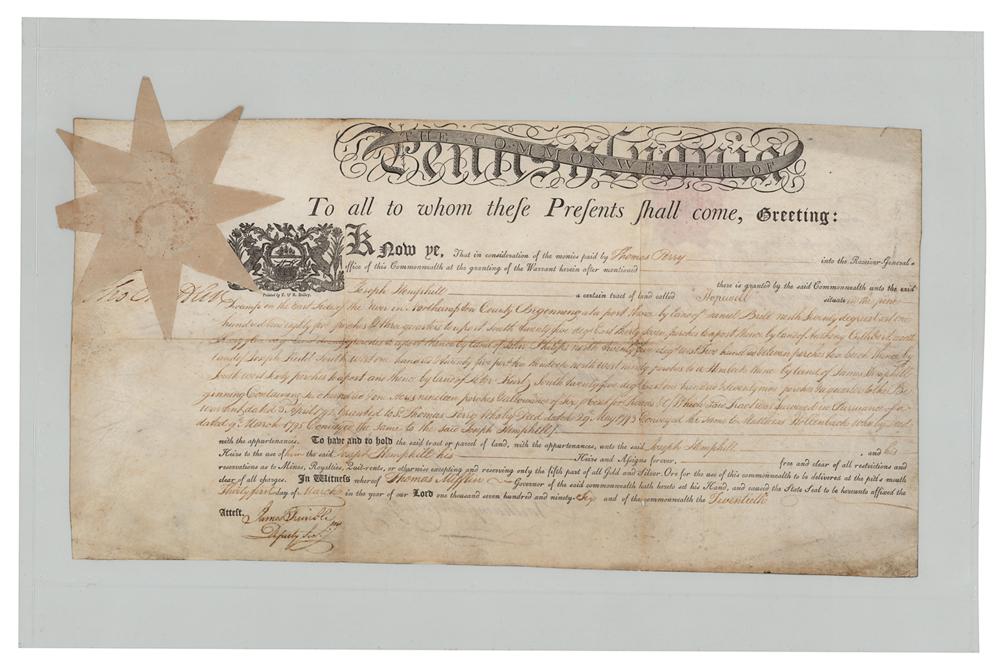 THE COMMONWEALTH OF
Pennsylvania
To all to whom theſe Preſents ſhall come, Greeting:
Know ye, That in consideration of the monies paid by Thomas Perry into the Receiver-General's
office of this Commonwealth at the granting of the Warrant herein after mentioned there is granted by the said Commonwealth unto the said
Joseph Hemphill a certain tract of land called Hopewell situate in the great
Printed by F. & R. Bailey.
Tho Mifflin
Swamp on the East side of the River in Northampton County Beginning at a post thence by land of Samuel Bell north seventy degrees east one
hundred and eighty five perches & three quarters to a post South twenty five deg East thirty seven perches to a post thence by land of Anthony Cuthbert north
to a post thence by land of John Philips north twenty five deg west two hundred & eleven perches to a beech thence by
land of Joseph South west one hundred & twenty five per. to a Hemlock north west ninety perches to a Hemlock thence by land of James Hemphill
South west sixty perches to a post and thence by land of Peter Kurtz South twenty five deg East one hundred & seventy nine perches & a quarter to the Be
ginning Containing nineteen perches & allowance of six pr cent for Roads &c Which said Tract was Surveyed in Pursuance of a
warrant dated 3 April 1792 Granted to Sd. Thomas Perry Who by Deed dated 29 May 1793 Conveyed the same to Matthias Hollenback Who by Deed
dated 9th March 1795 Conveyed the same to the said Joseph Hemphill
with the appurtenances. To have and to hold the said tract or parcel of land, with the appurtenances, unto the said Joseph Hemphill , and his
Heirs to the use of him the said Joseph Hemphill his Heirs and Assigns forever, free and clear of all restrictions and
reservations as to Mines, Royalties, Quit-rents, or otherwise excepting and reserving only the fifth part of all Gold and Silver Ore for the use of this commonwealth to be delivered at the pit's mouth
clear of all charges. In Witness whereof Thomas Mifflin Governor of the said commonwealth hath hereto set his Hand, and caused the State Seal to be hereunto affixed the
Thirty first day of March in the year of our Lord one thousand seven hundred and ninety-Six and of the commonwealth the Twentieth
Attest.
James Trimble
Deputy Secy